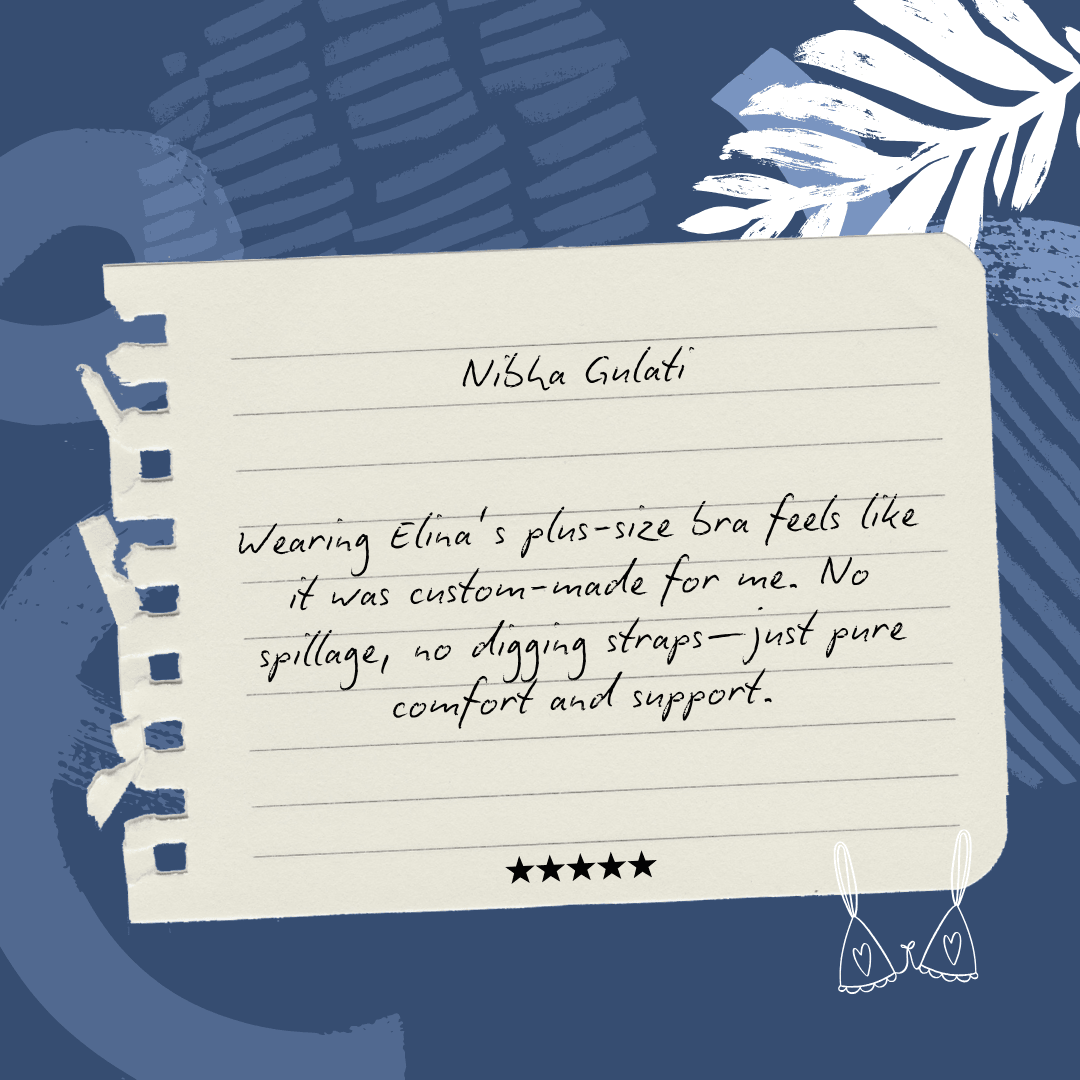 Nibha Gulati
Wearing Elina's plus-size bra feels like
it was custom-made for me. No
spillage, no digging straps—just pure
comfort and support.
★★★★★